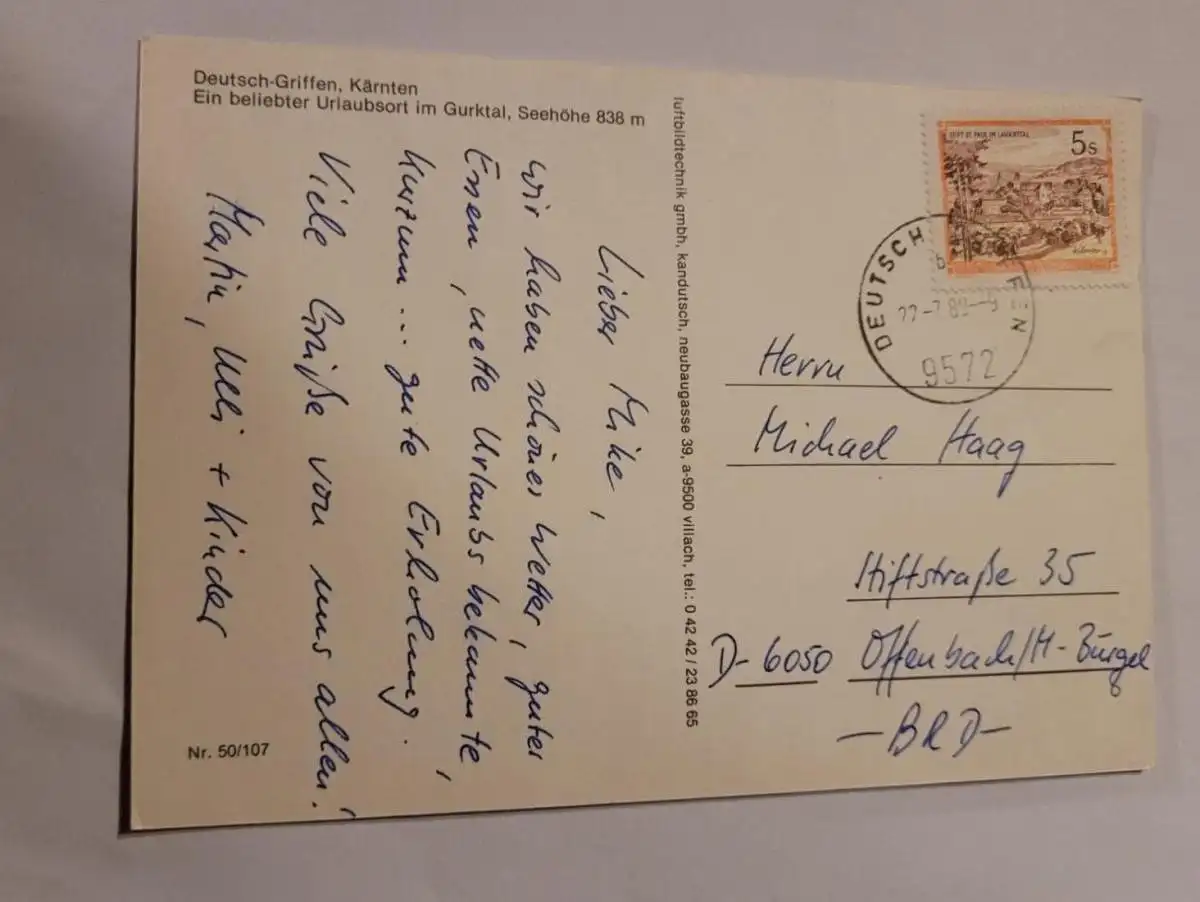 Deutsch-Griffen, Kärnten
Ein beliebter Urlaubsort im Gurktal, Seehöhe 838 m
Lieber Mike,
wir haben schönes Wetter, gutes
Essen, nette Urlaubsbekannte,
kurzum... gute Erholung.
Viele Grüße von uns allen!
Martin, Ulli + Kinder
Nr. 50/107
luftbildtechnik gmbh, kandutsch, neubaugasse 39, a-9500 villach, tel.: 0 42 42 / 23 86 65
STIFT ST. PAUL IM LAVANTTAL
5s
DEUTSCH
9572
Herrn
Michael Haag
Stiftstraße 35
D-6050 Offenbach/M-Bürgel
-BRD-